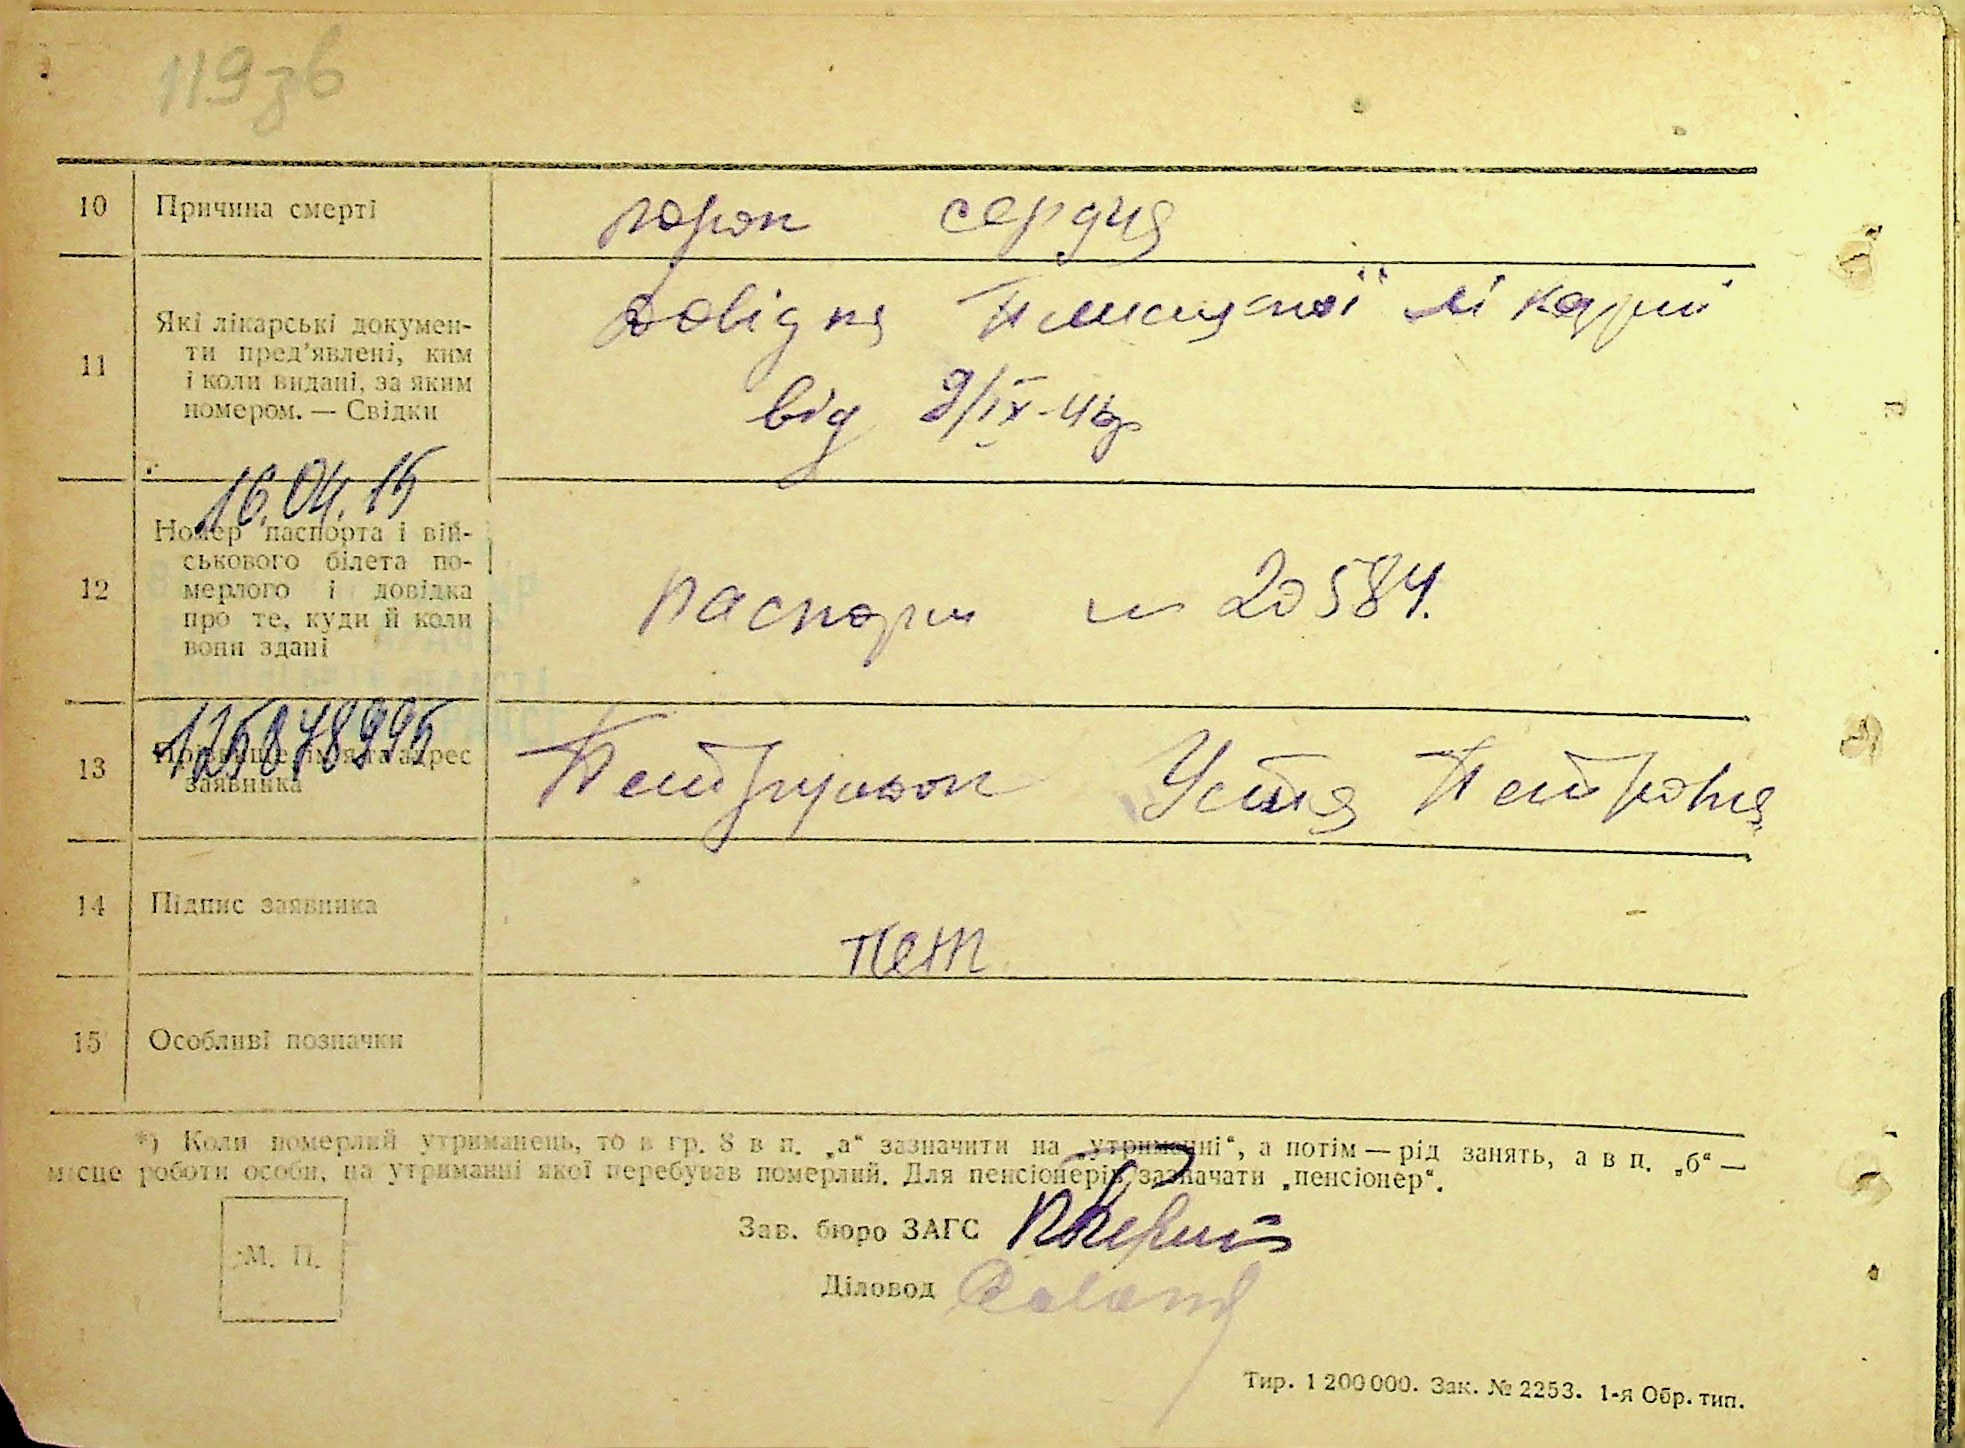 119зв
10 Причина смерті порок сердця
11 Які лікарські докумен-
ти пред'явлені, ким
і коли видані, за яким
номером. — Свідки
довідка лікарні
від 9/IX-
16.04.15
12 Номер паспорта і вій-
ськового білета по-
мерлого і довідка
про те, куди й коли
вони здані
паспорт № 20584.
125878995
13 Прізвище, ім'я та адрес
заявника
Устя Петровна
14 Підпис заявника
Пет
15 Особливі позначки
*) Коли померлий утриманець, то в гр. 8 в п. „а“ зазначити на „утриманні“, а потім — рід занять, а в п. „б“ —
місце роботи особи, на утриманні якої перебував померлий. Для пенсіонерів зазначати „пенсіонер“.
М. П.
Зав. бюро ЗАГС
Діловод
Тир. 1 200 000. Зак. № 2253. 1-я Обр. тип.